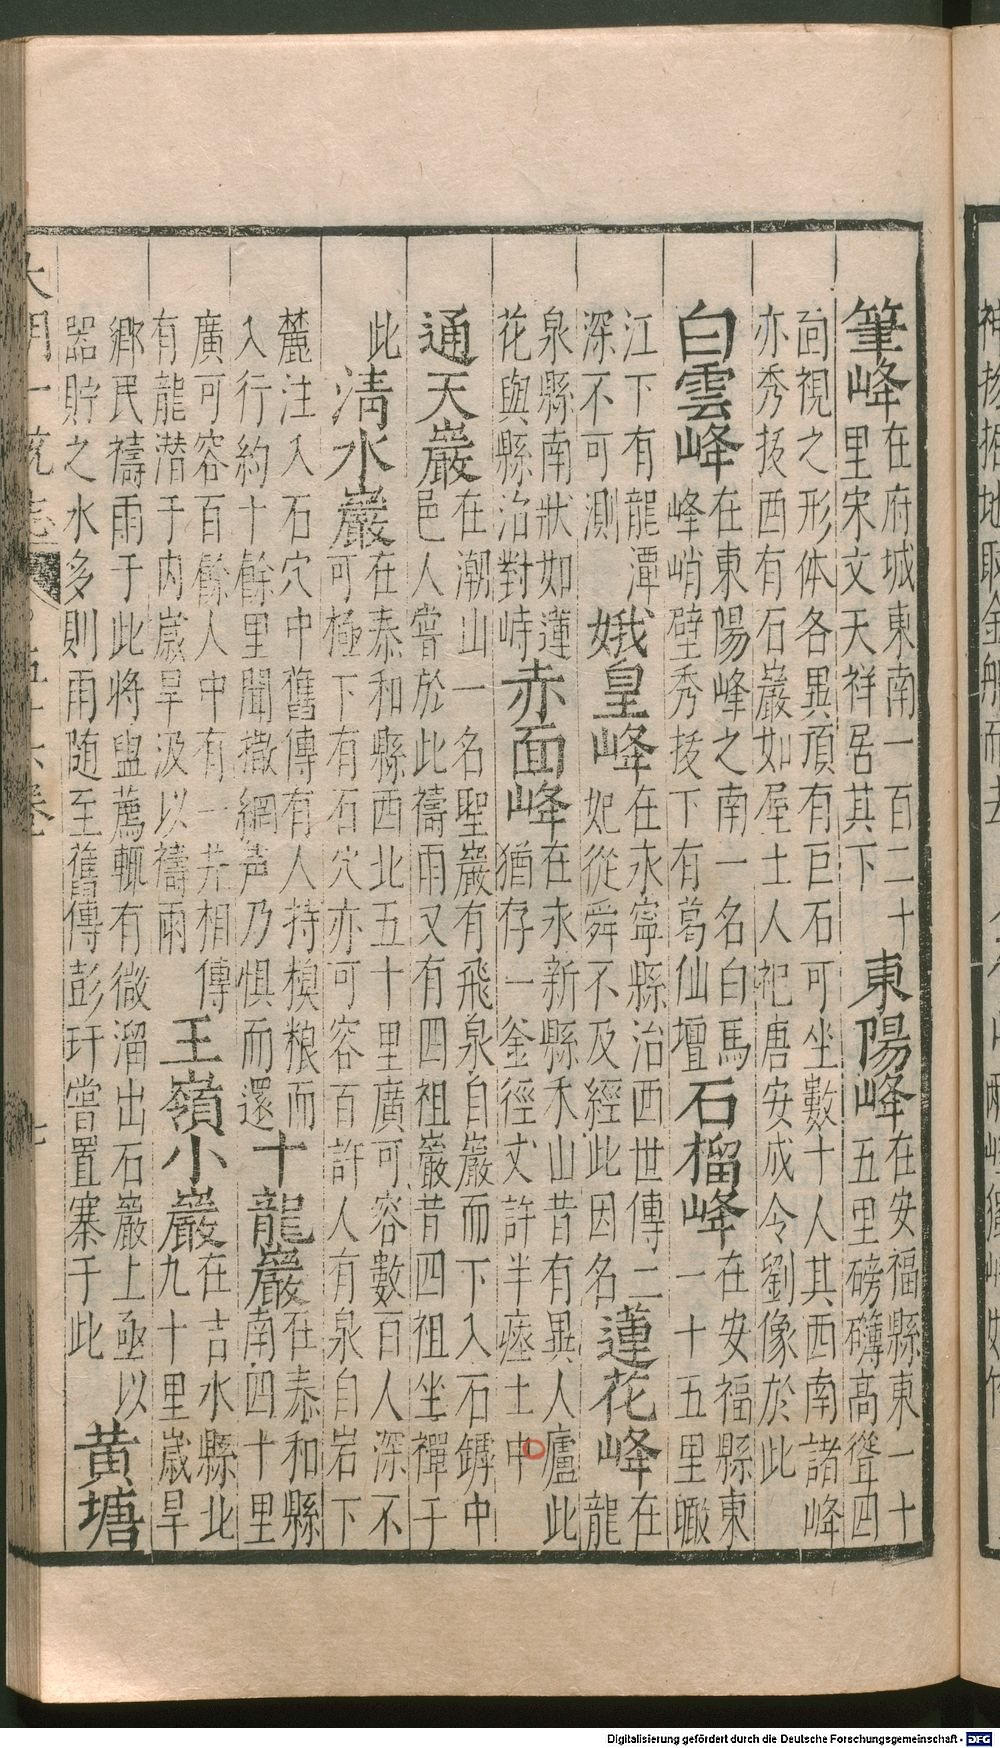 筆峰在府城東南一百二十里宋文天祥居其下東陽峰在安福縣東一十五里磅礴高聳四
面視之形体各異頂有巨石可坐數十人其西南諸峰亦秀抜西有石巖如屋土人祀唐安成令劉像於此
白雲峰在東陽峰之南一名白馬峰峭壁秀抜下有葛仙壇石橊峰在安福縣東一十五里瞰
江下有龍潭深不可測娥皇峰在永寧縣治西世傳二妃從舜不及經此因名蓮花峰在龍
泉縣南狀如蓮花與縣治對峙赤面峰在永新縣禾山昔有異人廬此猶存一釡徑丈許半瘞土中
通天巖在潮山一名聖巖有飛泉自巖而下入石罅中邑人嘗於此禱雨又有四祖巖昔四祖坐禪于
此清水巖在泰和縣西北五十里廣可容數百人深不可極下有石穴亦可容百許人有泉自岩下
麓注入石穴中舊傳有人持糗粮而入行約十餘里聞撒網声乃惧而還十龍巖在泰和縣南四十里
廣可容百餘人中有一井相傳有龍潜于内歲旱汲以禱雨王嶺小巖在吉水縣北九十里歲旱
鄉民禱雨于此将盥薦輒有微溜出石巖上亟以器貯之水多則雨随至舊傳彭玕嘗置寨于此黄塘
大明一統志
五十六卷
七
Digitalisierung gefördert durch die Deutsche Forschungsgemeinschaft - DFG